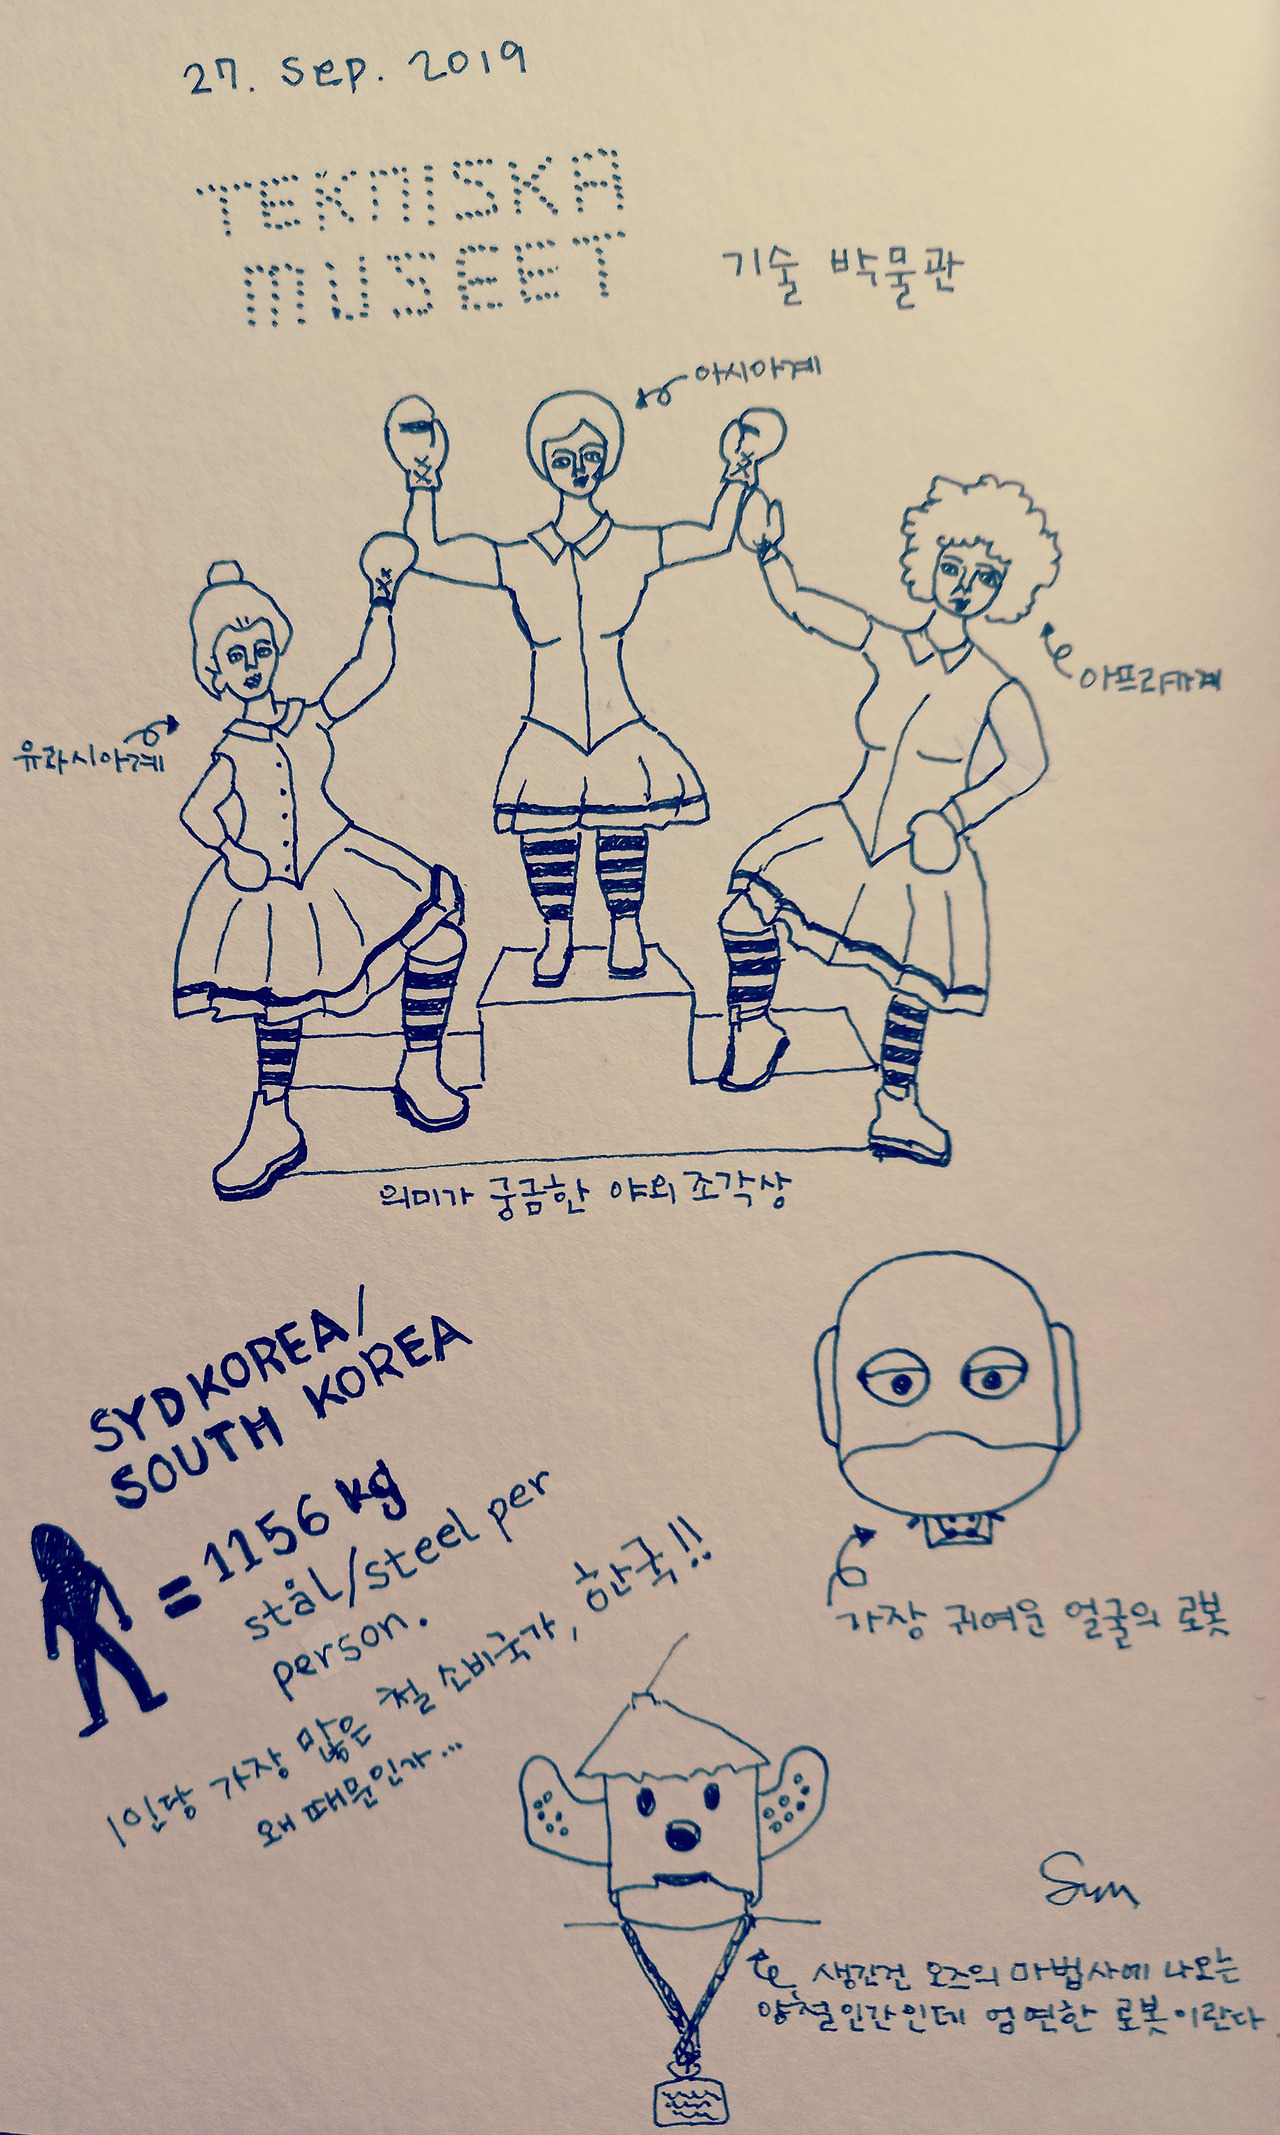 27. Sep. 2019
TEKNISKA
MUSEET
기술 박물관
아시아계
아프리카계
유라시아계
의미가 궁금한 야외 조각상
SYDKOREA/
SOUTH KOREA
= 1156 kg
stål/steel per
person.
1인당 가장 많은 철 소비국가, 한국!!
왜 때문인가...
가장 귀여운 얼굴의 로봇
Sun
생긴건 오즈의 마법사에 나오는
양철인간인데 엄연한 로봇이란다.